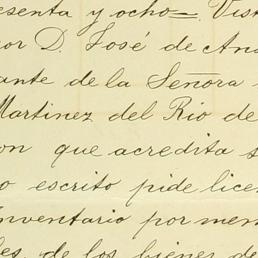 esenta y ocho=. Vist
or D. José de Ana
ante de la Señora
Martinez del Rio de
on que acredita s
o escrito pide lice
nventario por mem
les, de los bienes de